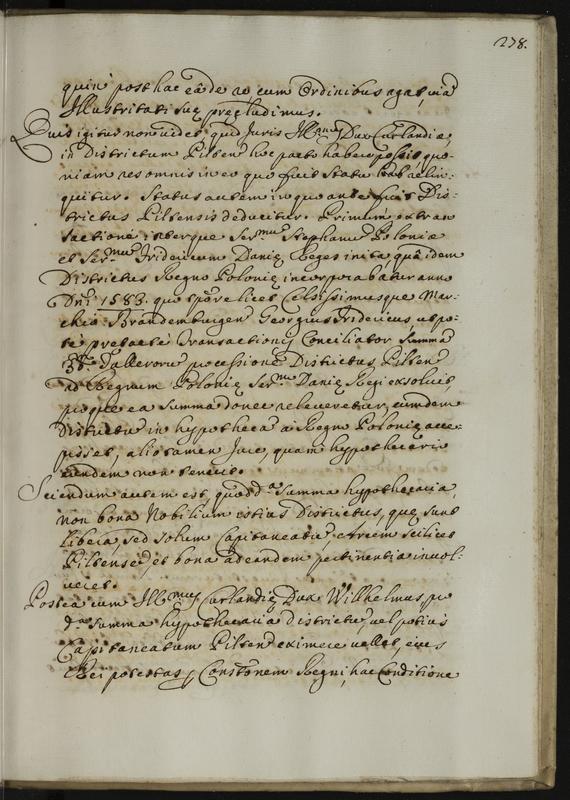 278.
quin post hac eâde re cum Ordinibus agat, viã
Illustritati suę pręcludimus.
Quis igitur non videt, quid Juris Illmus Dux Curlandię,
in Districtum Piltens hoc pacto habere possit, quo-
niam res omnis in eo quo fuit statu relin-
quitur. Status autem in quo ante fuit Dis-
trictus Piltensis deducitur. Primum ex tran
sactione inter que Sermũ Stephanũ Polonię
et Sermũ Fridericum Danię Reges inita, quâ idem
Districtus Regno Polonię incorporabatur anno
Dni 1583. quo tpore licet Celsissimusque Mar-
chio Brandemburgen Georgius Fridericus utpo-
te praefatae Transactionis Conciliator summã
Tallerorũ pro cessione Districtus Pilten
ad Regnum Polonię Sermo Danię Regi exsolvit
proque ea summa donec relueretur, eundem
Districtũ in hypothecã a Regno Polonię acce-
pisset, alio tamen Jure, quam hypothecario
eundem non tenuit.
Sciendum autem est, quod da summa hypothecaria,
non bona Nobilium istius Districtus, quę sunt
libera, sed solum Capitaneatũ, Arcem scilicet
Piltensẽ, et bona ad eandem pertinentia invol-
veret.
Postea cum Illmus Curlandię Dux Wilhelmus, pro
da summa hypothecaria Districtũ, vel potius
Capitaneatum Pilten eximere vellet, eius
Rei potestas p Constonem Regni, hac Conditione